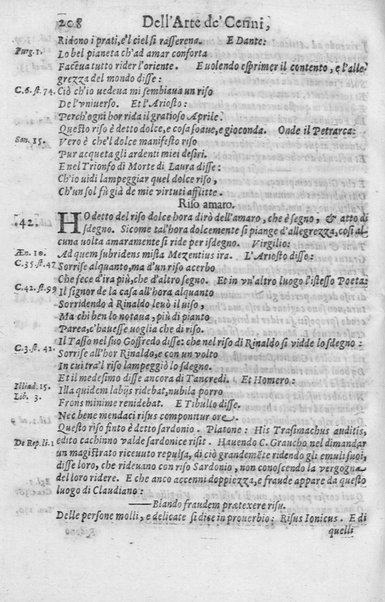 208 Dell'Arte de' Cenni,
Ridono i prati, e'l ciel si rasserena. E Dante:
Purg. 1. Lo bel pianeta ch'ad amar conforta
Faceua tutto rider l'oriente. E volendo esprimer il contento, e l'alle-
grezza del mondo disse:
C. 6. st. 74. Ciò ch'io uedeua mi sembiaua un riso
De l'vniuerso. Et l'Ariosto:
Perch'ogni hor rida il gratioso Aprile.
Questo riso è detto dolce, e cosa soaue, e gioconda. Onde il Petrarca:
Son. 15. Vero è che'l dolce mansueto riso
Pur acqueta gli ardenti miei desiri.
E nel Trionfo di Morte di Laura disse:
Ch'io uidi lampeggiar quel dolce riso,
Ch'un sol fù già de mie virtuti afflitte.
Riso amaro.
42. HO detto del riso dolce hora dirò dell'amaro, che è segno, & atto di
sdegno. Sicome tal'hora dolcemente si piange d'allegrezza, così al-
cuna volta amaramente si ride per isdegno. Virgilio:
Æn. 10. Ad quem subridens mista Mezentius ira. L'Ariosto disse:
C. 35. st. 47 Sorrise alquanto, ma d'un riso acerbo
Che fece d'ira più, che d'altro segno. Et in vn'altro luogo l'istesso Poeta:
C. 42. st. 99 Il signor de la casa all'hora alquanto
Sorridendo à Rinaldo leuò il uiso,
Ma chi ben lo notaua, più di pianto
Parea, c'hauesse voglia che di riso.
Il Tasso nel suo Goffredo disse: che nel riso di Rinaldo si vidde lo sdegno:
C. 3. st. 42. Sorrise all'hor Rinaldo, e con un volto
In cui tra'l riso lampeggiò lo sdegno.
Et il medesimo disse ancora di Tancredi. Et Homero:
Illiad. 15. Illa quidem labijs ridebat, nubila porro
Lib. 3. Frons minime renidebat. E Tibullo disse.
Nec bene mendaci risus componitur ore.
Questo riso finto è detto sardonio. Platone: His Trasimachus auditis,
De Rep. li. 1 edito cachinno valde sardonice risit. Hauendo C. Graucho nel dimandar
un magistrato riceuuto repulsa, di ciò grandemẽte ridendo gli emuli suoi,
disse loro, che rideuano con riso Sardonio, non conoscendo la vergogna
del loro ridere. E che anco accenni doppiezza, e fraude appare da questo
luogo di Claudiano:
Blando fraudem prætexere risu.
Delle persone molli, e delicate si dice in prouerbio: Risus Ionicus. E di
quelli